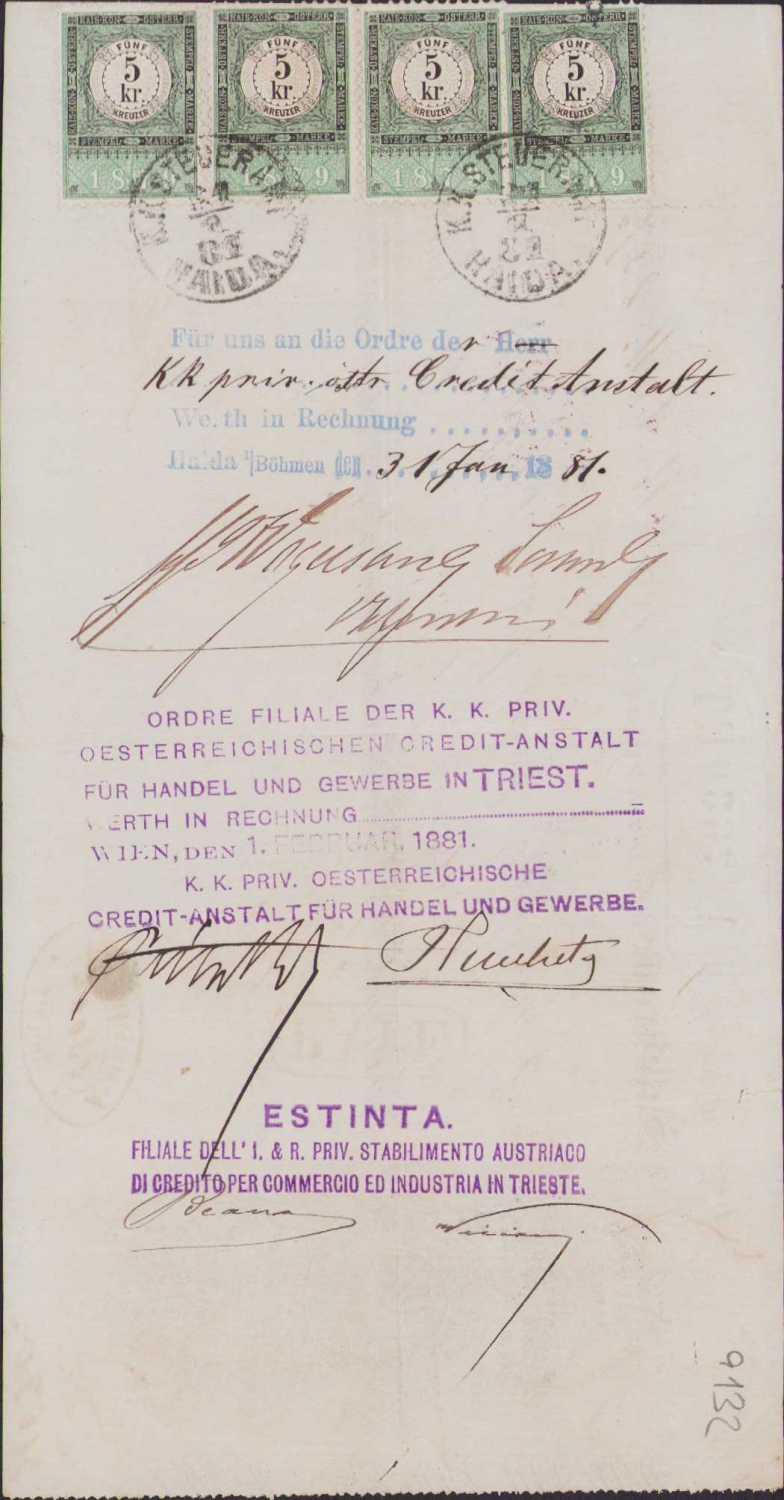 KAIS·KÖN·ÖSTERR· KAIS·KÖN·ÖSTERR· KAIS·KÖN·ÖSTERR· KAIS·KÖN·ÖSTERR·
FÜNF FÜNF FÜNF FÜNF
5 5 5 5
kr. kr. kr. kr.
KREUZER KREUZER KREUZER KREUZER
STEMPEL MARKE STEMPEL MARKE STEMPEL MARKE STEMPEL MARKE
K.K. STEUERAMT K.K. STEUERAMT
81 81
HAIDA. HAIDA.
Für uns an die Ordre der Herr
KK priv. östr. Credit Anstalt.
Werth in Rechnung
Haida i/Böhmen den 31 Jan 1881.
ORDRE FILIALE DER K. K. PRIV.
OESTERREICHISCHEN CREDIT-ANSTALT
FÜR HANDEL UND GEWERBE IN TRIEST.
WERTH IN RECHNUNG
WIEN, DEN 1. FEBRUAR, 1881.
K. K. PRIV. OESTERREICHISCHE
CREDIT-ANSTALT FÜR HANDEL UND GEWERBE.
ESTINTA.
FILIALE DELL' I. & R. PRIV. STABILIMENTO AUSTRIACO
DI CREDITO PER COMMERCIO ED INDUSTRIA IN TRIESTE.
9132